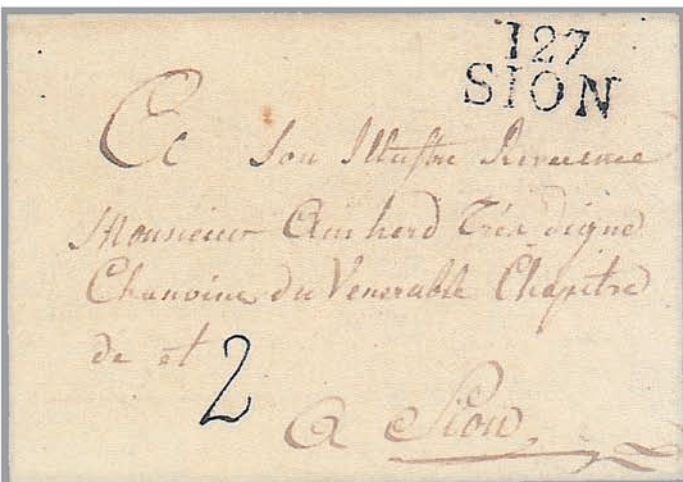 127
SION
A Son Illustre Reverence
Monsieur Amherd Très digne
Chanoine du Venerable Chapitre
de et
2
a Sion